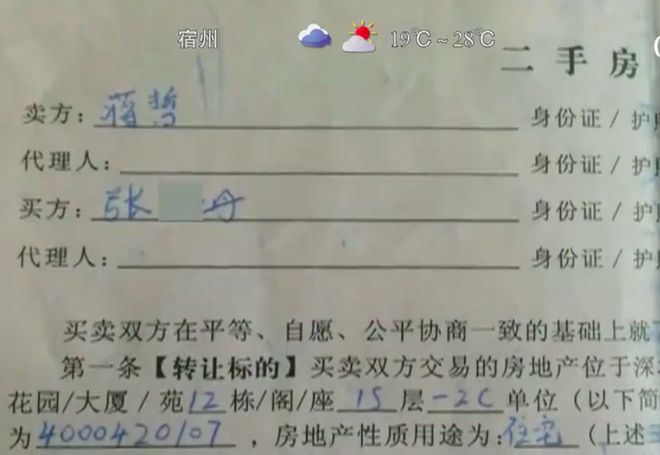 宿州 19℃~28℃
二手房
卖方：蒋哲 身份证/护
代理人： 身份证/护
买方：张 丹 身份证/护
代理人： 身份证/护
买卖双方在平等、自愿、公平协商一致的基础上就
第一条【转让标的】买卖双方交易的房地产位于深
花园/大厦/苑12栋/阁/座15层-2C单位（以下简
为4000420107，房地产性质用途为：住宅（上述